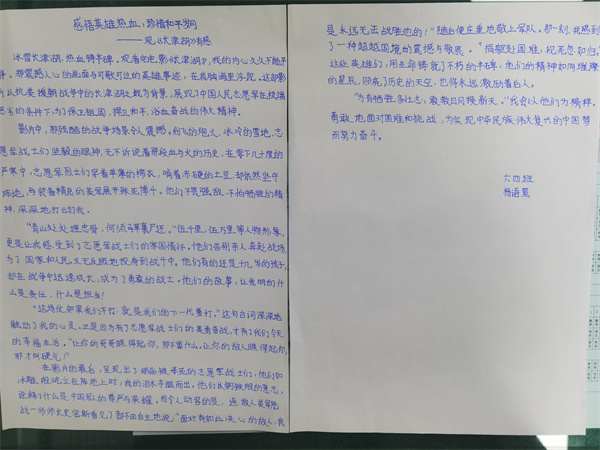 感悟英雄热血，珍惜和平岁月
——观《长津湖》有感
冰雪长津湖，热血铸丰碑。观看电影《长津湖》，我的内心久久不能平
静。那震撼人心的画面与可歌可泣的英雄事迹，在我脑海里浮现。这部影
片从抗美援朝战争中的长津湖之战为背景，展现了中国人民志愿军在极端
恶劣的条件下，为了保卫祖国，捍卫和平，浴血奋战的伟大精神。
影片中，那残酷的战争场景令人震撼。纷飞的炮火，冰冷的雪地，志
愿军战士们坚毅的眼神，无不诉说着那段血与火的历史。在零下几十度的
严寒中，志愿军战士们穿着单薄的棉衣，啃着冻硬的土豆，却依然坚守
阵地，与装备精良的美军展开殊死搏斗。他们不畏强敌、不怕牺牲的精
神，深深地打动了我。
“青山处处埋忠骨，何须马革裹尸还。”伍千里，伍万里等人物形象，
更是让我感受到了志愿军战士们的家国情怀。他们告别亲人，奔赴战场
为了国家和人民，义无反顾地投身到战斗中。他们有的还是十几岁的孩子，
却在战争中迅速成长，成为了勇敢的战士。他们的故事，让我明白什
么是责任，什么是担当！
“这场仗如果我们不打，就是我们的下一代要打。”这句台词深深地
触动了我的心灵。正是因为有了志愿军战士们的英勇奋战，才有了我们今天
的幸福生活。“让你的哥哥瞧得起你，那不算什么。让你的敌人瞧得起你，
那才叫硬气！”
在影片的最后，呈现出了被冻死的志愿军战士们，他们如
冰雕般屹立在阵地上时，我的泪水夺眶而出。他们以钢铁般的意志，
诠释了什么是中国军人的尊严与荣耀。而令人动容的是，连敌人美军陆
战一师师长史密斯看见了都不由自主地说：“面对有如此决心的敌人，我
是永远无法战胜他们！”随后便庄重地敬上军队。那一刻，我感到
了一种超越国境的震撼与敬畏。“捐躯赴国难，视死忽如归。”
这些英雄们，用生命铸就了不朽的丰碑，他们的精神如同璀璨
的星辰，照亮了历史的天空，也将永远激励着后人。
“为有牺牲多壮志，敢教日月换新天。”我会以他们为榜样，
勇敢地面对困难和挑战，为实现中华民族伟大复兴的中国梦
而努力奋斗。
六四班